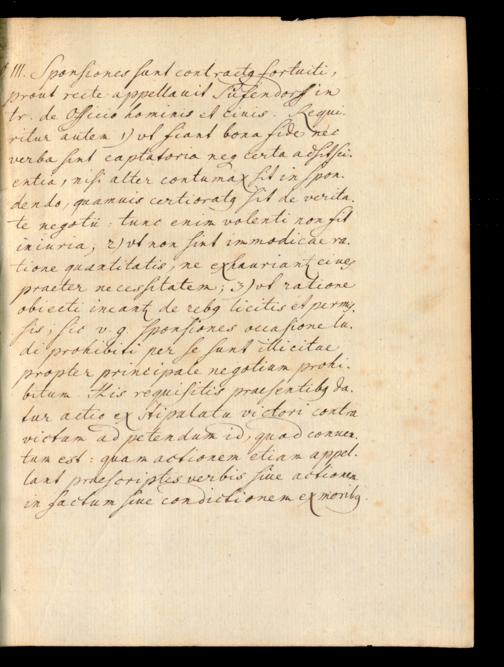 III. Sponsiones sunt contractq fortuiti,
prout recte appellavit Pufendorf in
tr. de Officio hominis et civis. Requi-
ritur autem 1) vt fiant bona fide nec
verba sint captatoria neq certa adsit sci-
entia, nisi alter contumax sit in spon-
dendo, quamuis certioratq sit de verita-
te negotii: tunc enim volenti non fit
iniuria; 2) vt non sint immodicae ra-
tione quantitatis, ne exhauriant ciues
praeter necessitatem; 3) vt ratione
obiecti ineant de rebq licitis et permis-
sis, sic v. g. sponsiones occasione lu-
di prohibiti per se sunt illicitae
propter principale negotium prohi-
bitum. His requisitis praesentibq da-
tur actio ex stipulatu victori contra
victum ad petendum id, quod conuen-
tum est: quam actionem etiam appel-
lant praescriptis verbis siue actionem
in factum siue condictionem ex moribq.